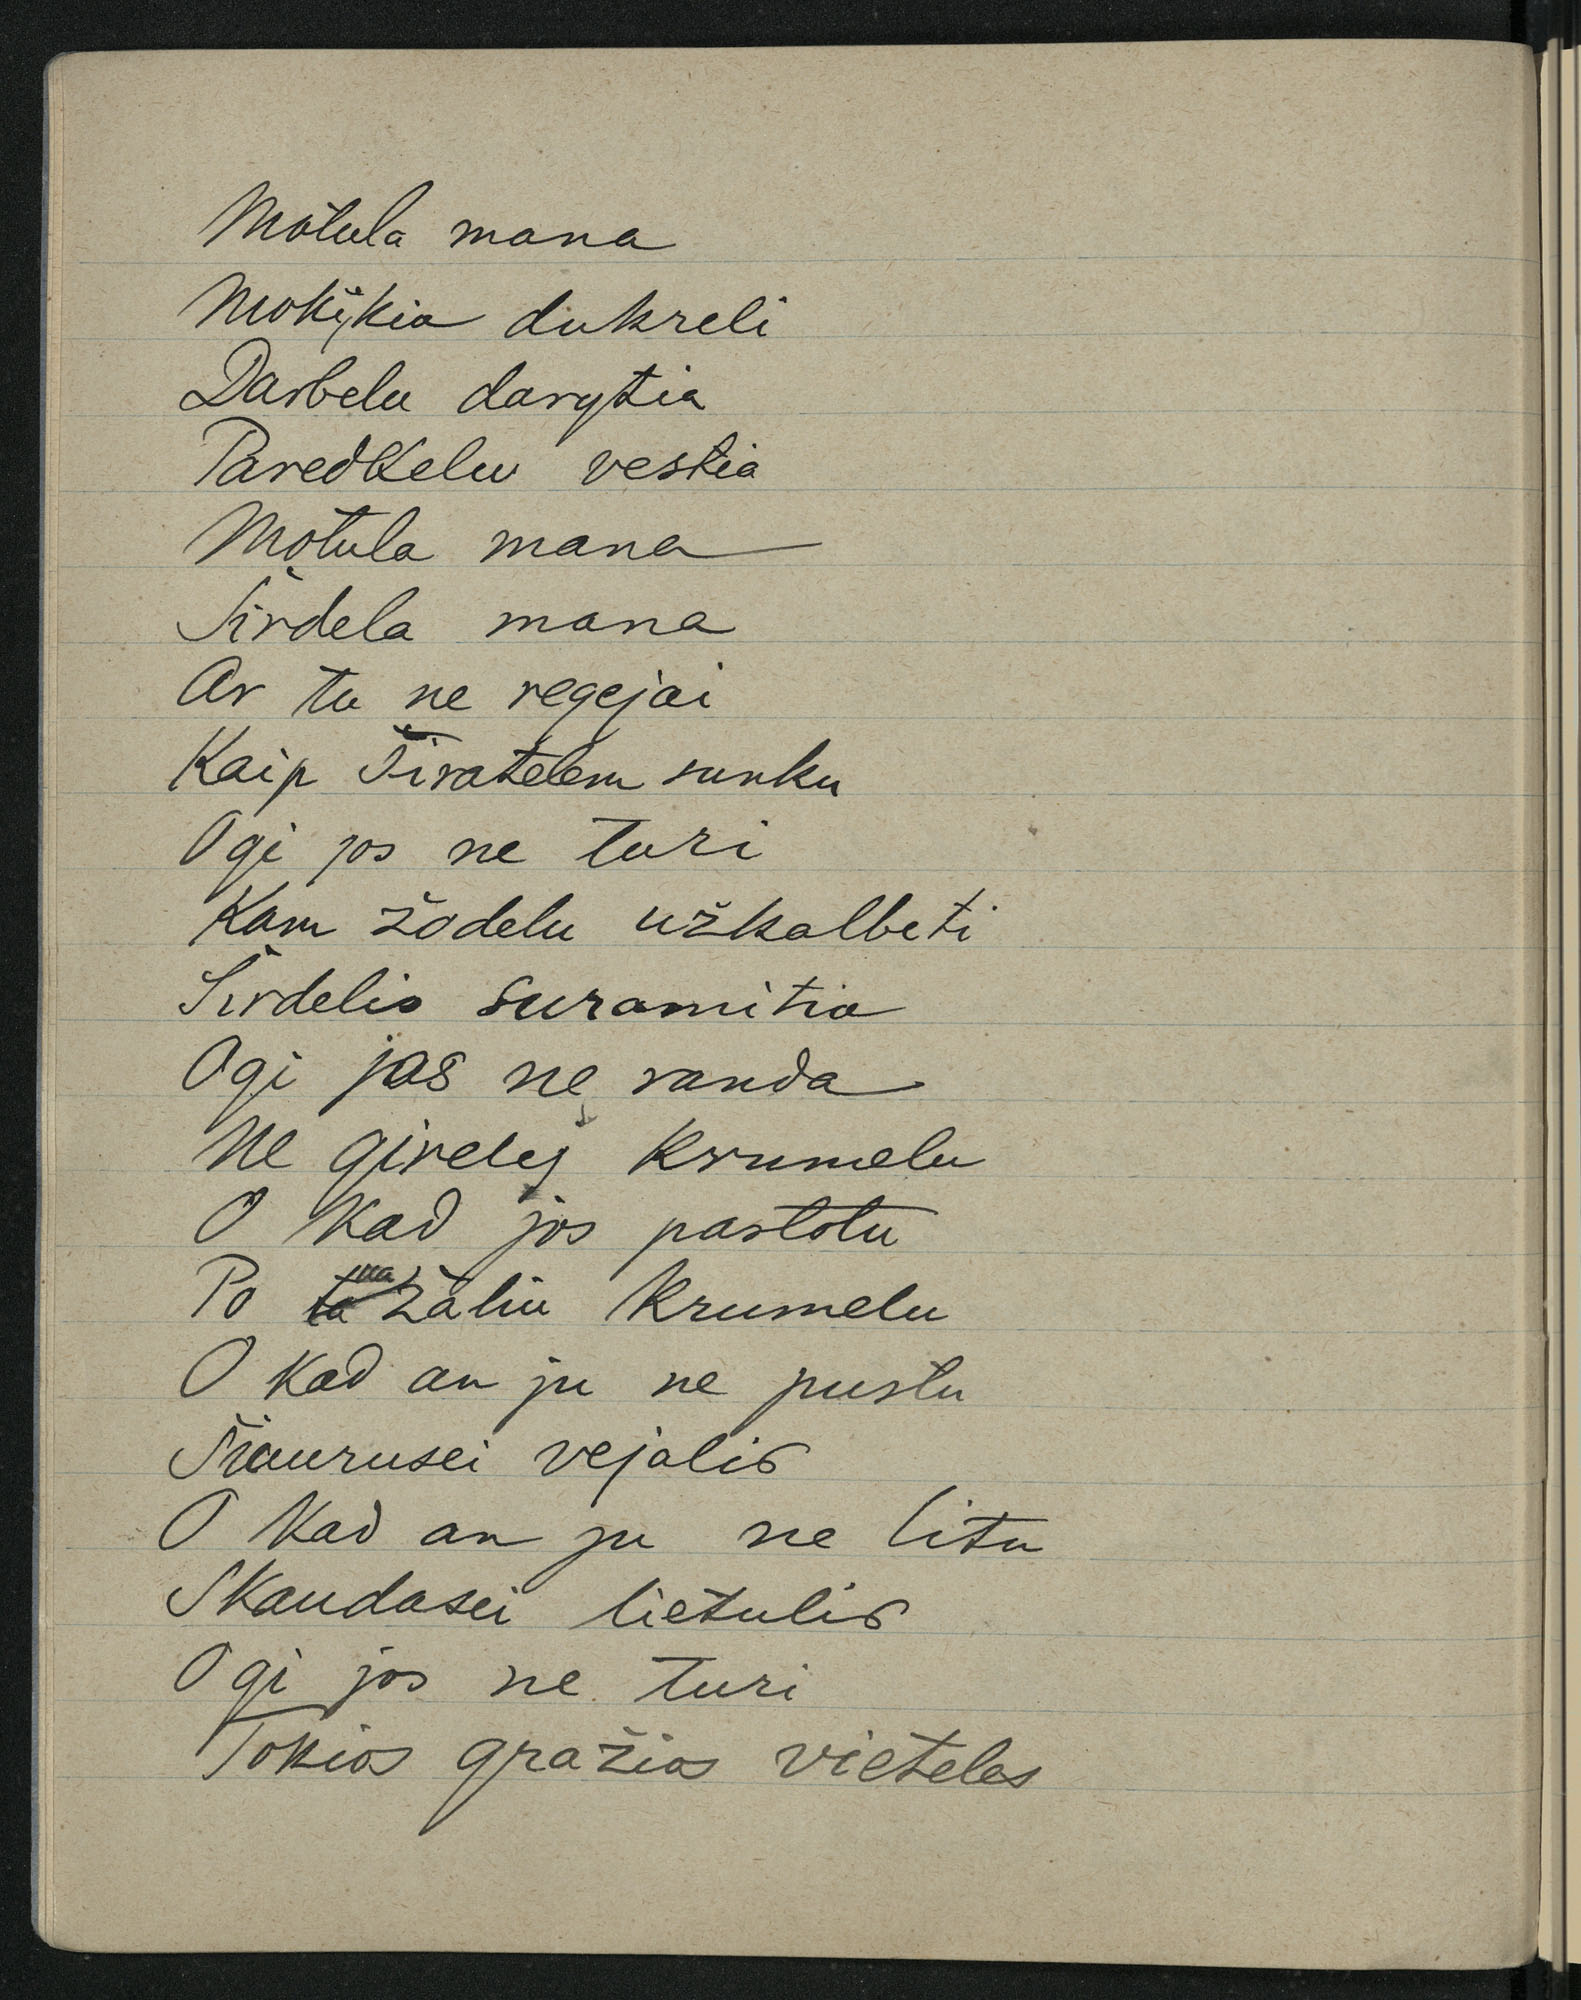 Motula mana
Mokikia dukreli
Darbelu darytia
Paredkelu vestia
Motula mana
Širdela mana
Ar tu ne regejai
Kaip Širatelem sunku
Ogi jos ne turi
Kam žodelu užkalbeti
Širdelia suramitia
Ogi jos ne randa
Ne girelej krumelu
O kad jos pastotu
Po žaliu krumelu
O kad an ju ne pustu
Šiaurusei vejalis
O kad an ju ne litu
Skaudasei lietulis
Ogi jos ne turi
Tokios gražios vieteles